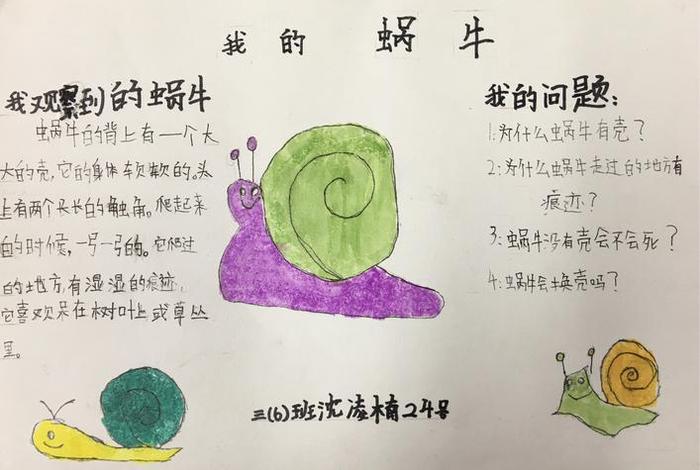 我的 蜗牛
我观察到的蜗牛
蜗牛的背上有一个大
大的壳,它的身体软软的。头
上有两个长长的触角。爬起来
的时候,一弓一弓的。它爬过
的地方,有湿湿的痕迹,
它喜欢呆在树叶上或草丛
里。
我的问题:
1:为什么蜗牛有壳?
2:为什么蜗牛走过的地方有
痕迹?
3:蜗牛没有壳会不会死?
4:蜗牛会换壳吗?
三(6)班沈凌楠24号